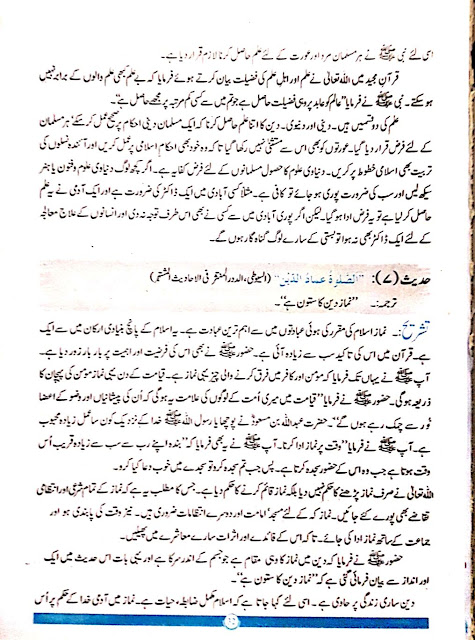 اسی لئے نبی ﷺ نے ہر مسلمان مرد اور عورت کے لئے علم حاصل کرنا لازم قرار دیا ہے۔
قرآن مجید میں اللہ تعالیٰ نے علم اور اہل علم کی فضیلت بیان کرتے ہوئے فرمایا کہ بے علم کبھی علم والوں کے برابر نہیں
ہو سکتے۔ نبی ﷺ نے فرمایا "عالم کو عابد پر وہی فضیلت حاصل ہے جو تم میں سے کسی کم مرتبہ پر مجھے حاصل ہے"۔
علم کی دو قسمیں ہیں۔ دینی اور دنیوی۔ دین کا اتنا علم حاصل کرنا کہ ایک مسلمان دینی احکام پر صحیح عمل کر سکے' ہر مسلمان
کے لئے فرض قرار دیا گیا۔ عورتوں کو بھی اس سے مستثنیٰ نہیں رکھا گیا تا کہ وہ خود بھی احکام اسلامی پر عمل کریں اور آئندہ نسلوں کی
تربیت بھی اسلامی خطوط پر کریں۔ دنیاوی علوم کا حصول مسلمانوں کے لئے فرض کفایہ ہے۔ اگر کچھ لوگ دنیاوی علوم و فنون یا ہنر
سیکھ لیں اور سب کی ضرورت پوری ہو جائے تو کافی ہے۔ مثلاً کسی آبادی میں ایک ڈاکٹر کی ضرورت ہے اور ایک آدمی نے یہ علم
حاصل کر لیا ہے تو یہ فرض ادا ہو گیا۔ لیکن اگر پوری آبادی میں سے کسی نے بھی اس طرف توجہ نہ دی اور انسانوں کے علاج معالجہ
کے لئے ایک ڈاکٹر بھی نہ ہوا تو بستی کے سارے لوگ گناہ گار ہوں گے۔
حدیث (۷): "اَلصَّلٰوةُ عِمَادُ الدِّيْنِ" (السیوطی، الدرر المنتثرۃ فی الاحادیث المشتہرۃ)
ترجمہ:۔ "نماز دین کا ستون ہے"۔
تشریح:۔ نماز اسلام کی مقرر کی ہوئی عبادتوں میں سے اہم ترین عبادت ہے۔ یہ اسلام کے پانچ بنیادی ارکان میں سے ایک
ہے۔ قرآن میں اس کی تاکید سب سے زیادہ آئی ہے۔ حضور ﷺ نے بھی اس کی فرضیت اور اہمیت پر بار بار زور دیا ہے۔
آپ ﷺ نے یہاں تک فرمایا کہ مومن اور کافر میں فرق کرنے والی چیز یہی نماز ہے۔ قیامت کے دن یہی نماز مومن کی پہچان کا
ذریعہ ہو گی۔ حضور ﷺ نے فرمایا "قیامت میں میری اُمت کے لوگوں کی علامت یہ ہو گی کہ اُن کی پیشانیاں اور وضو کے اعضا
نُور سے چمک رہے ہوں گے"۔ حضرت عبداللہ بن مسعودؓ نے پوچھا یا رسول اللہ ﷺ خدا کے نزدیک کون سا عمل زیادہ محبوب
ہے۔ آپ ﷺ نے فرمایا "وقت پر نماز ادا کرنا۔ آپ ﷺ نے یہ بھی فرمایا کہ "بندہ اپنے رب سے سب سے زیادہ قریب اُس
وقت ہوتا ہے جب وہ اس کے حضور سجدہ کرتا ہے۔ پس جب تم سجدہ کرو تو سجدے میں خوب دعا کیا کرو۔
اللہ تعالیٰ نے صرف نماز پڑھنے کا حکم نہیں دیا بلکہ نماز قائم کرنے کا حکم دیا ہے۔ جس کا مطلب یہ ہے کہ نماز کے تمام شرعی اور انتظامی
تقاضے بھی پورے کئے جائیں۔ نماز کے لئے مسجد' امامت اور دوسرے انتظامات ضروری ہیں۔ نیز وقت کی پابندی ہو اور
جماعت کے ساتھ نماز ادا کی جائے۔ تا کہ اس کے فائدے اور اثرات سارے معاشرے میں پھیلیں۔
حضور ﷺ نے فرمایا کہ دین میں نماز کا وہی مقام ہے جو جسم کے اندر سر کا ہے اور یہی بات اس حدیث میں ایک
اور انداز سے بیان فرمائی گئی ہے کہ "نماز دین کا ستون ہے"۔
دین ساری زندگی پر حاوی ہے۔ اسی لئے کہا جاتا ہے کہ اسلام مکمل ضابطہ حیات ہے۔ نماز میں آدمی خدا کے حکم پر اُس